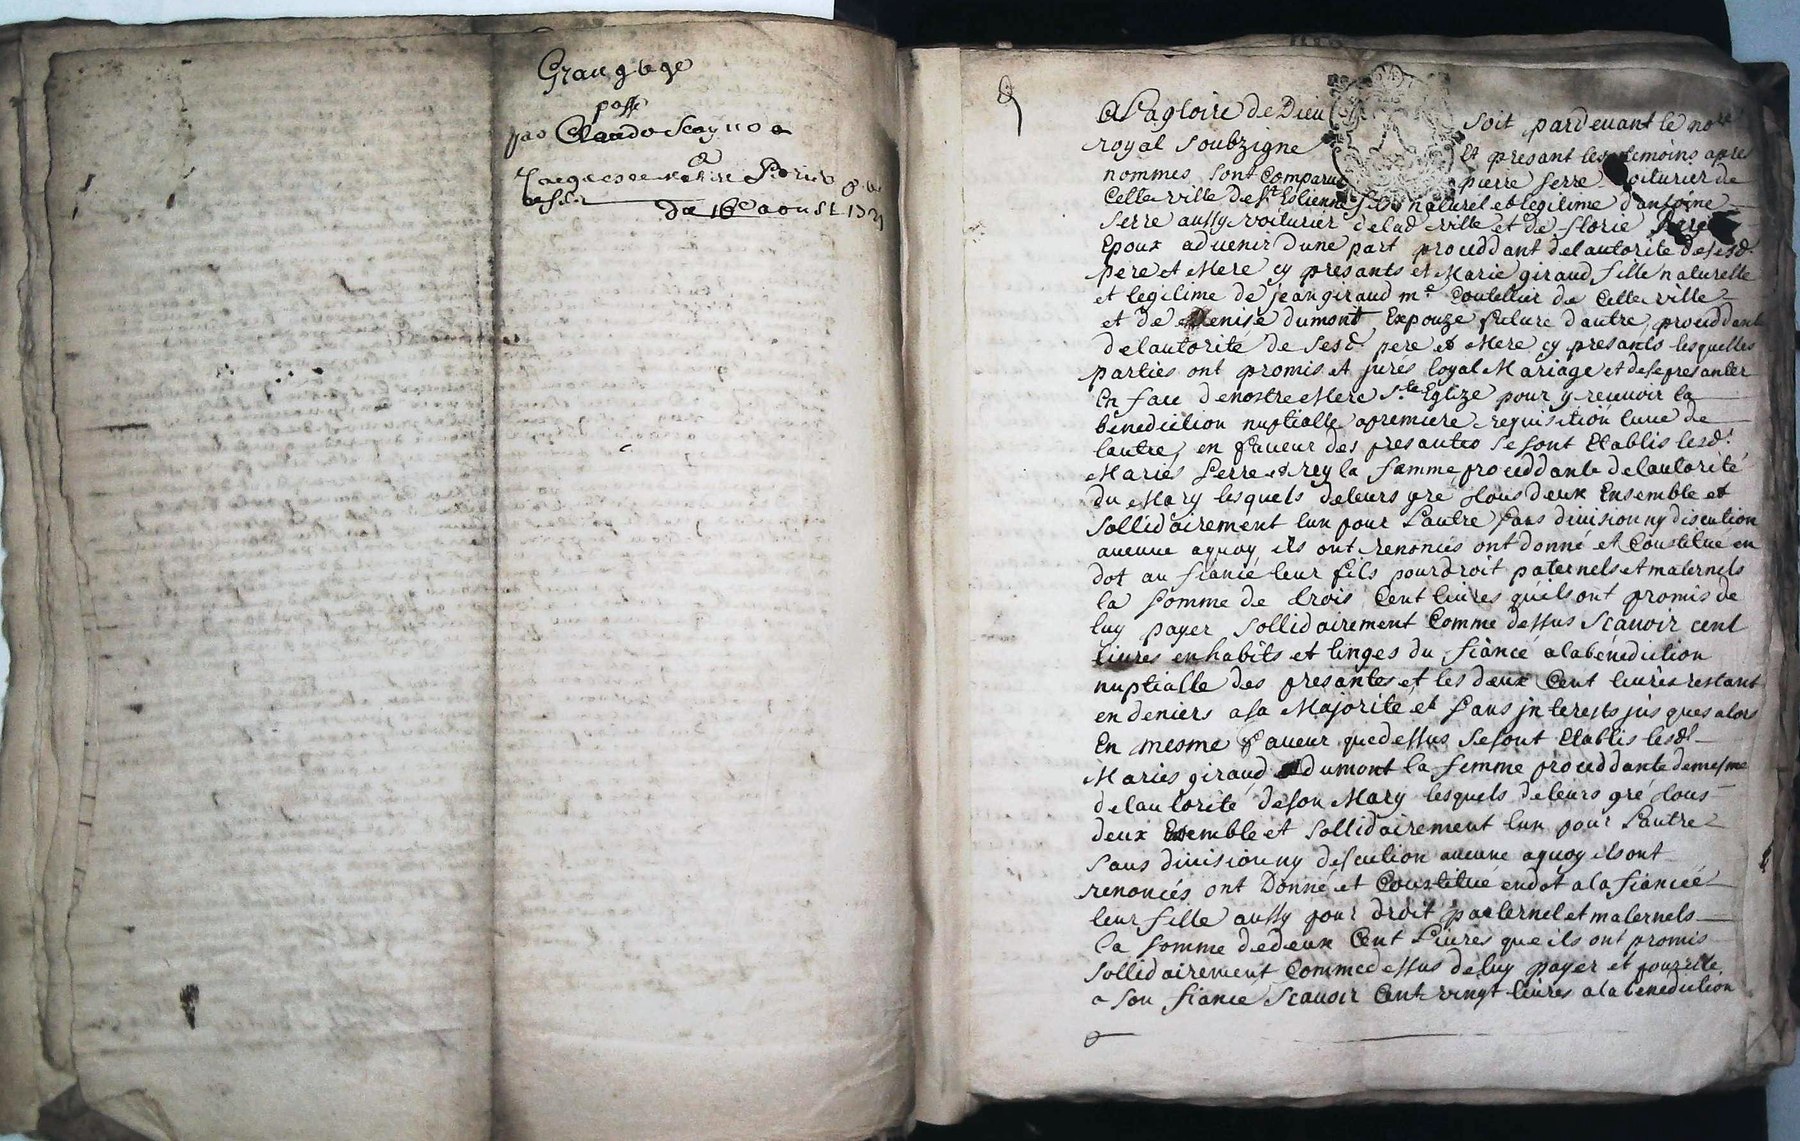 passé
par Claude
du 16e aoust
A La gloire de Dieu soit pardevant le nore
royal soubzigné Et presant les temoins apres
nommes sont Comparus pierre serre voiturier de
Cette ville de St Estienne fils naturel et legitime d'antoine
serre aussy voiturier de lad ville et de florie Rey
Epoux advenir dune part proceddant de lautorite de sesd.
pere et Mere cy presants et Marie giraud fille naturelle
et legitime de jean giraud me Coutellier de Cette ville
et de Denise dumont Expouze future d'autre, proceddante
de lautorité de sesd. pere et Mere cy presants lesquelles
parties ont promis et jurés loyal Mariage et de se presanter
En face de nostre Mere Ste Eglize pour y recevoir la
bénédiction nuptialle a premiere requisition lune de
lautre, en faveur des presantes se sont Etablis lesd.
Mariés serre et rey la famme proceddante de lautorité
du Mary lesquels de leurs gré tous deux Ensemble et
sollidairement lun pour Lautre sans division ny discution
aucune aquoy ils ont renoncés ont donné et Constitué en
dot au fiancé leur fils pour droit paternels et maternels
la somme de trois Cent livres quils ont promis de
luy payer sollidairement Comme dessus scavoir cent
livres en habits et linges du fiancé a la bénédiction
nuptialle des presantes et les deux Cent livres restant
en deniers a sa Majorité et sans jnterests jusques alors
En mesme faveur que dessus se sont Etablis lesd.
Mariés giraud et dumont la femme proceddante de mesme
de lautorité de son Mary lesquels de leurs gré tous
deux Ensemble et sollidairement lun pour Lautre
sans division ny discution aucune aquoy ils ont
renoncés ont Donné et Constitué en dot a la fiancée
leur fille aussy pour droit paternel et maternels
la somme de deux Cent Livres que ils ont promis
sollidairement Comme dessus de luy payer et pour elle
a son fiancé, scavoir Cent vingt livres a la benediction